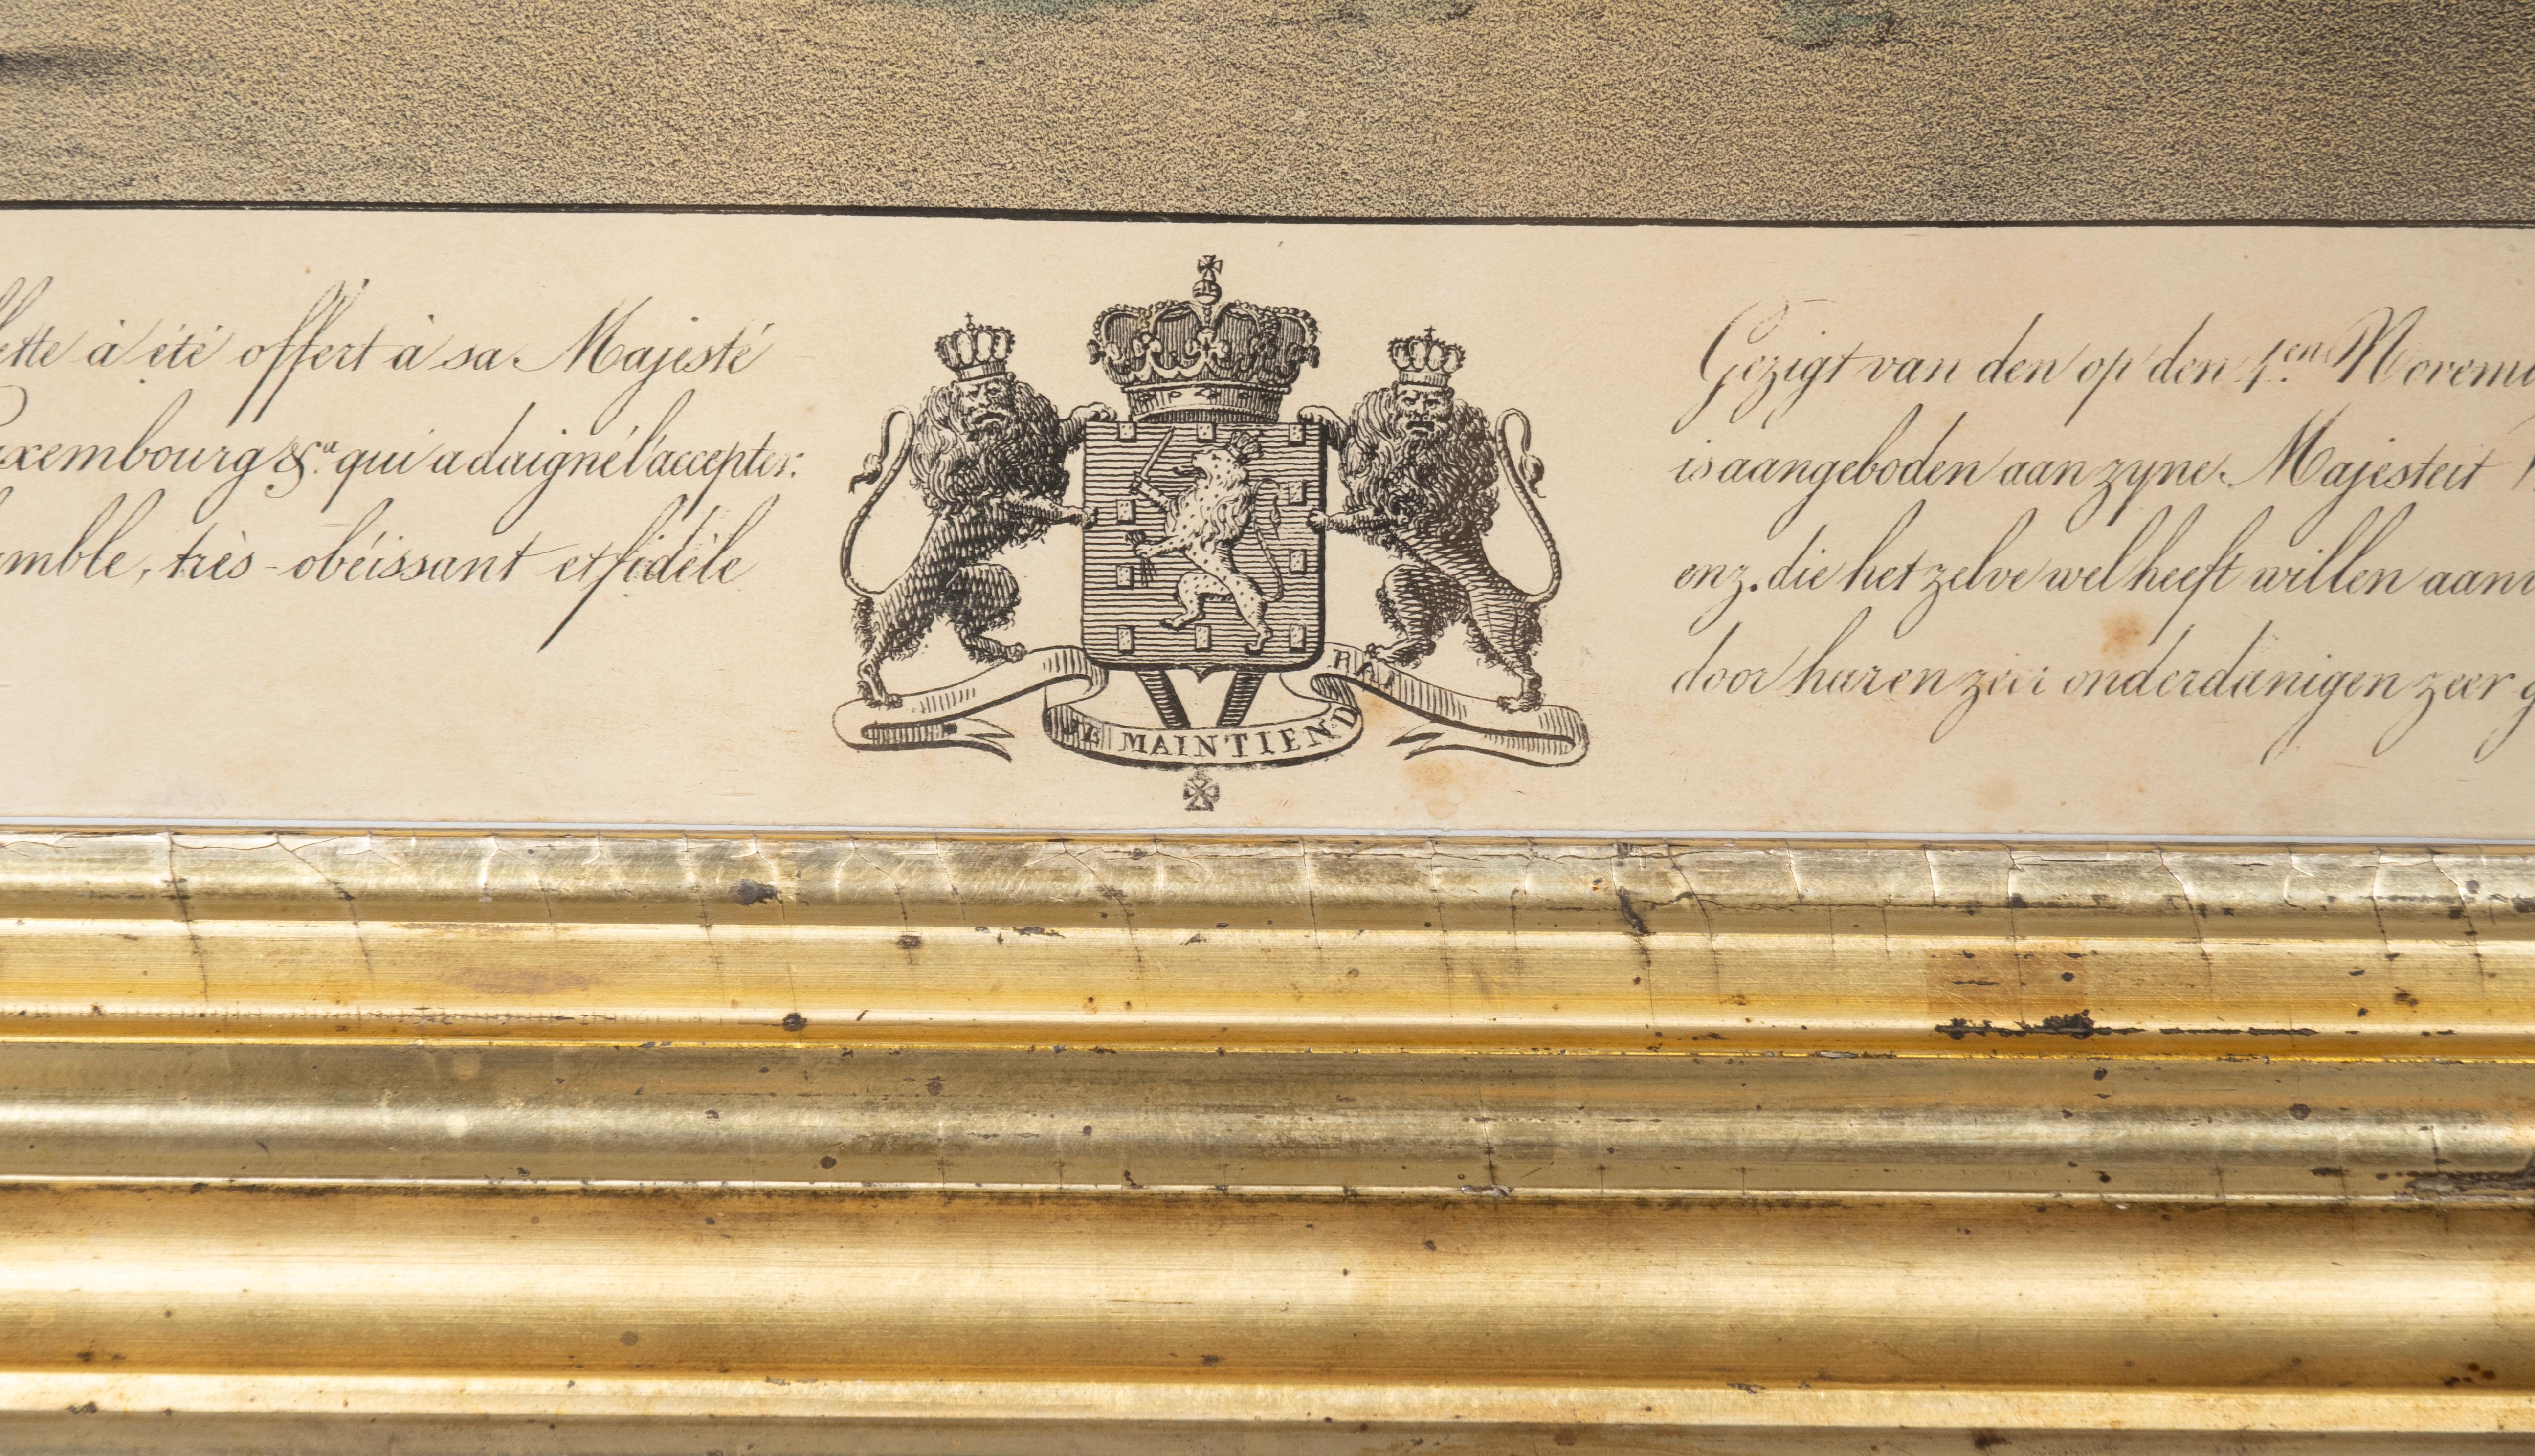 à été offert à sa Majesté
qui a daigné l'accepter.
très-obéissant et fidèle
JE MAINTIENDRAI
Gezigt van den op den
is aangeboden aan zyne Majesteit
enz. die het zelve wel heeft willen
door haren zeer onderdanigen zeer